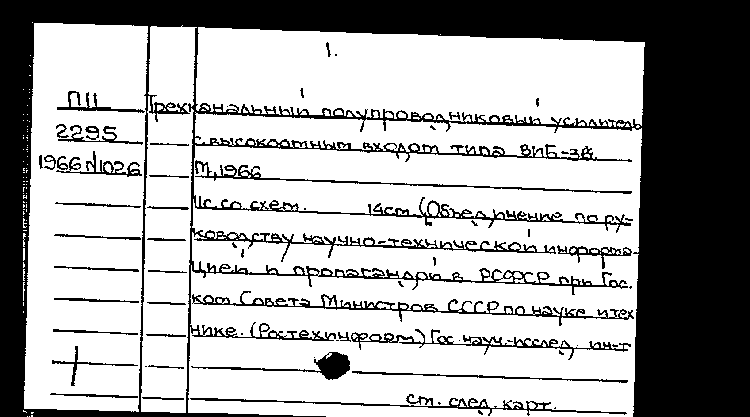 1.
П11 Трехканальный полупроводниковый усилитель
2295 с высокоомным входом типа ВИБ-3В.
1966 N1026 М, 1966
11с. со схем. 14см (Объединение по ру-
ководству научно-технической информа-
цией и пропагандой в РСФСР при Гос.
ком. Совета Министров СССР по науке и тех
нике. (Ростехинформ) Гос науч.-исслед. ин-т
см. след. карт.